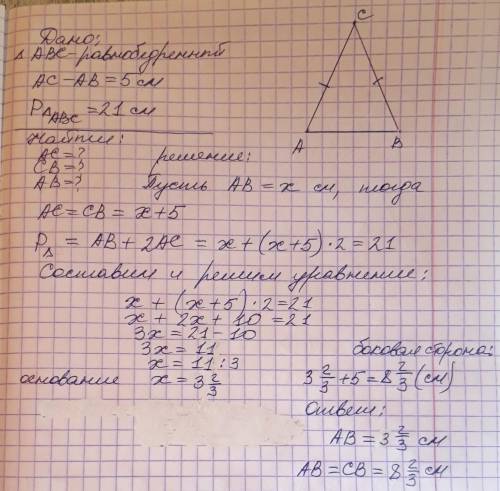 Дано:
Δ ABC-равнобедренный
AC-AB=5 см
P ΔABC =21 см
Найти:
AC=?
CB=?
AB=?
решение:
Пусть AB=x см, тогда
AC=CB=x+5
PΔ = AB+2AC = x+(x+5)·2=21
Составим и решим уравнение:
x+(x+5)·2=21
x+2x+10=21
3x=21-10
3x=11
x=11:3
основание x=3 2/3
боковая сторона:
3 2/3+5=8 2/3 (см)
Ответ:
AB=3 2/3 см
AB=CB=8 2/3 см
C
A
B